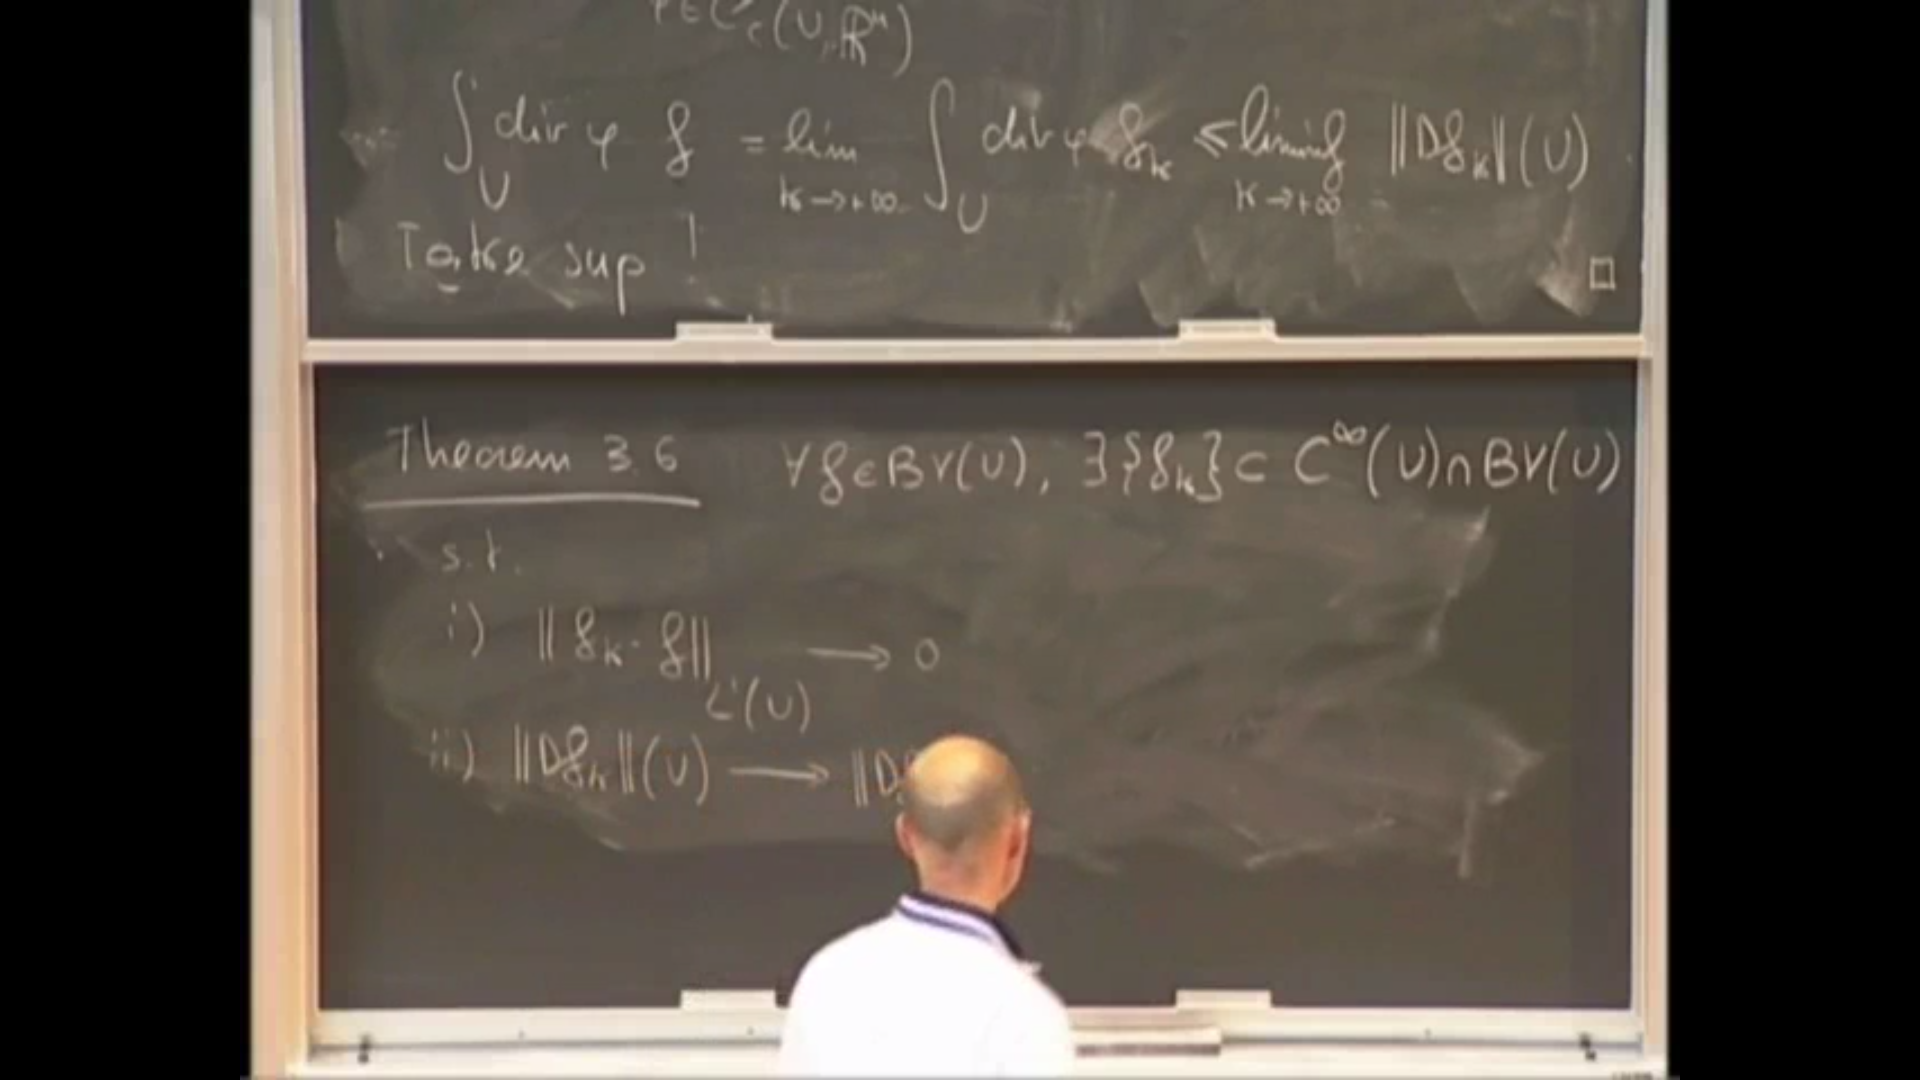 φ ∈ C_c(U, ℝⁿ)
∫_U div φ f = lim_{k→+∞} ∫_U div φ f_k ≤ liminf_{k→+∞} ‖Df_k‖(U)
Take sup ! □
Theorem 3.6 ∀f∈BV(U), ∃{f_k}⊂ C^∞(U)∩BV(U)
s.t.
i) ‖f_k - f‖_{L¹(U)} → 0
ii) ‖Df_k‖(U) → ‖D